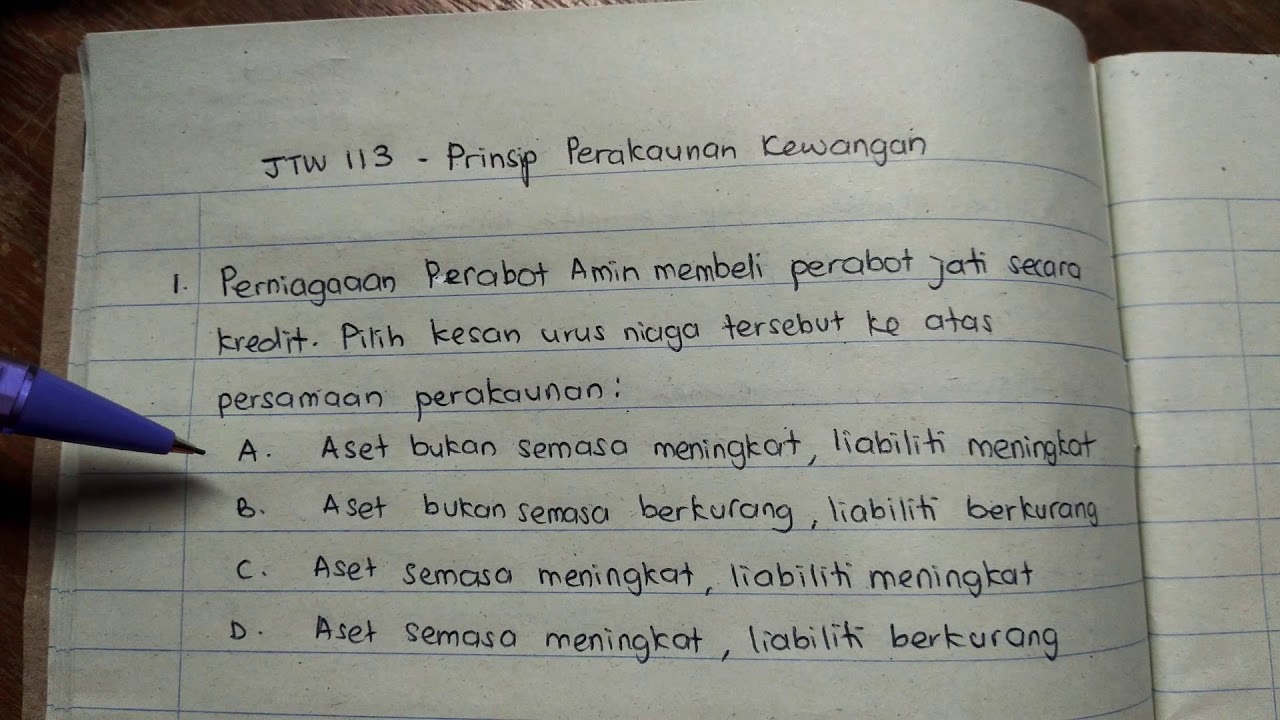 JTW 113 - Prinsip Perakaunan Kewangan
1. Perniagaaan Perabot Amin membeli perabot jati secara
kredit. Pilih kesan urus niaga tersebut ke atas
persamaan perakaunan:
A. Aset bukan semasa meningkat, liabiliti meningkat
B. Aset bukan semasa berkurang, liabiliti berkurang
C. Aset semasa meningkat, liabiliti meningkat
D. Aset semasa meningkat, liabiliti berkurang